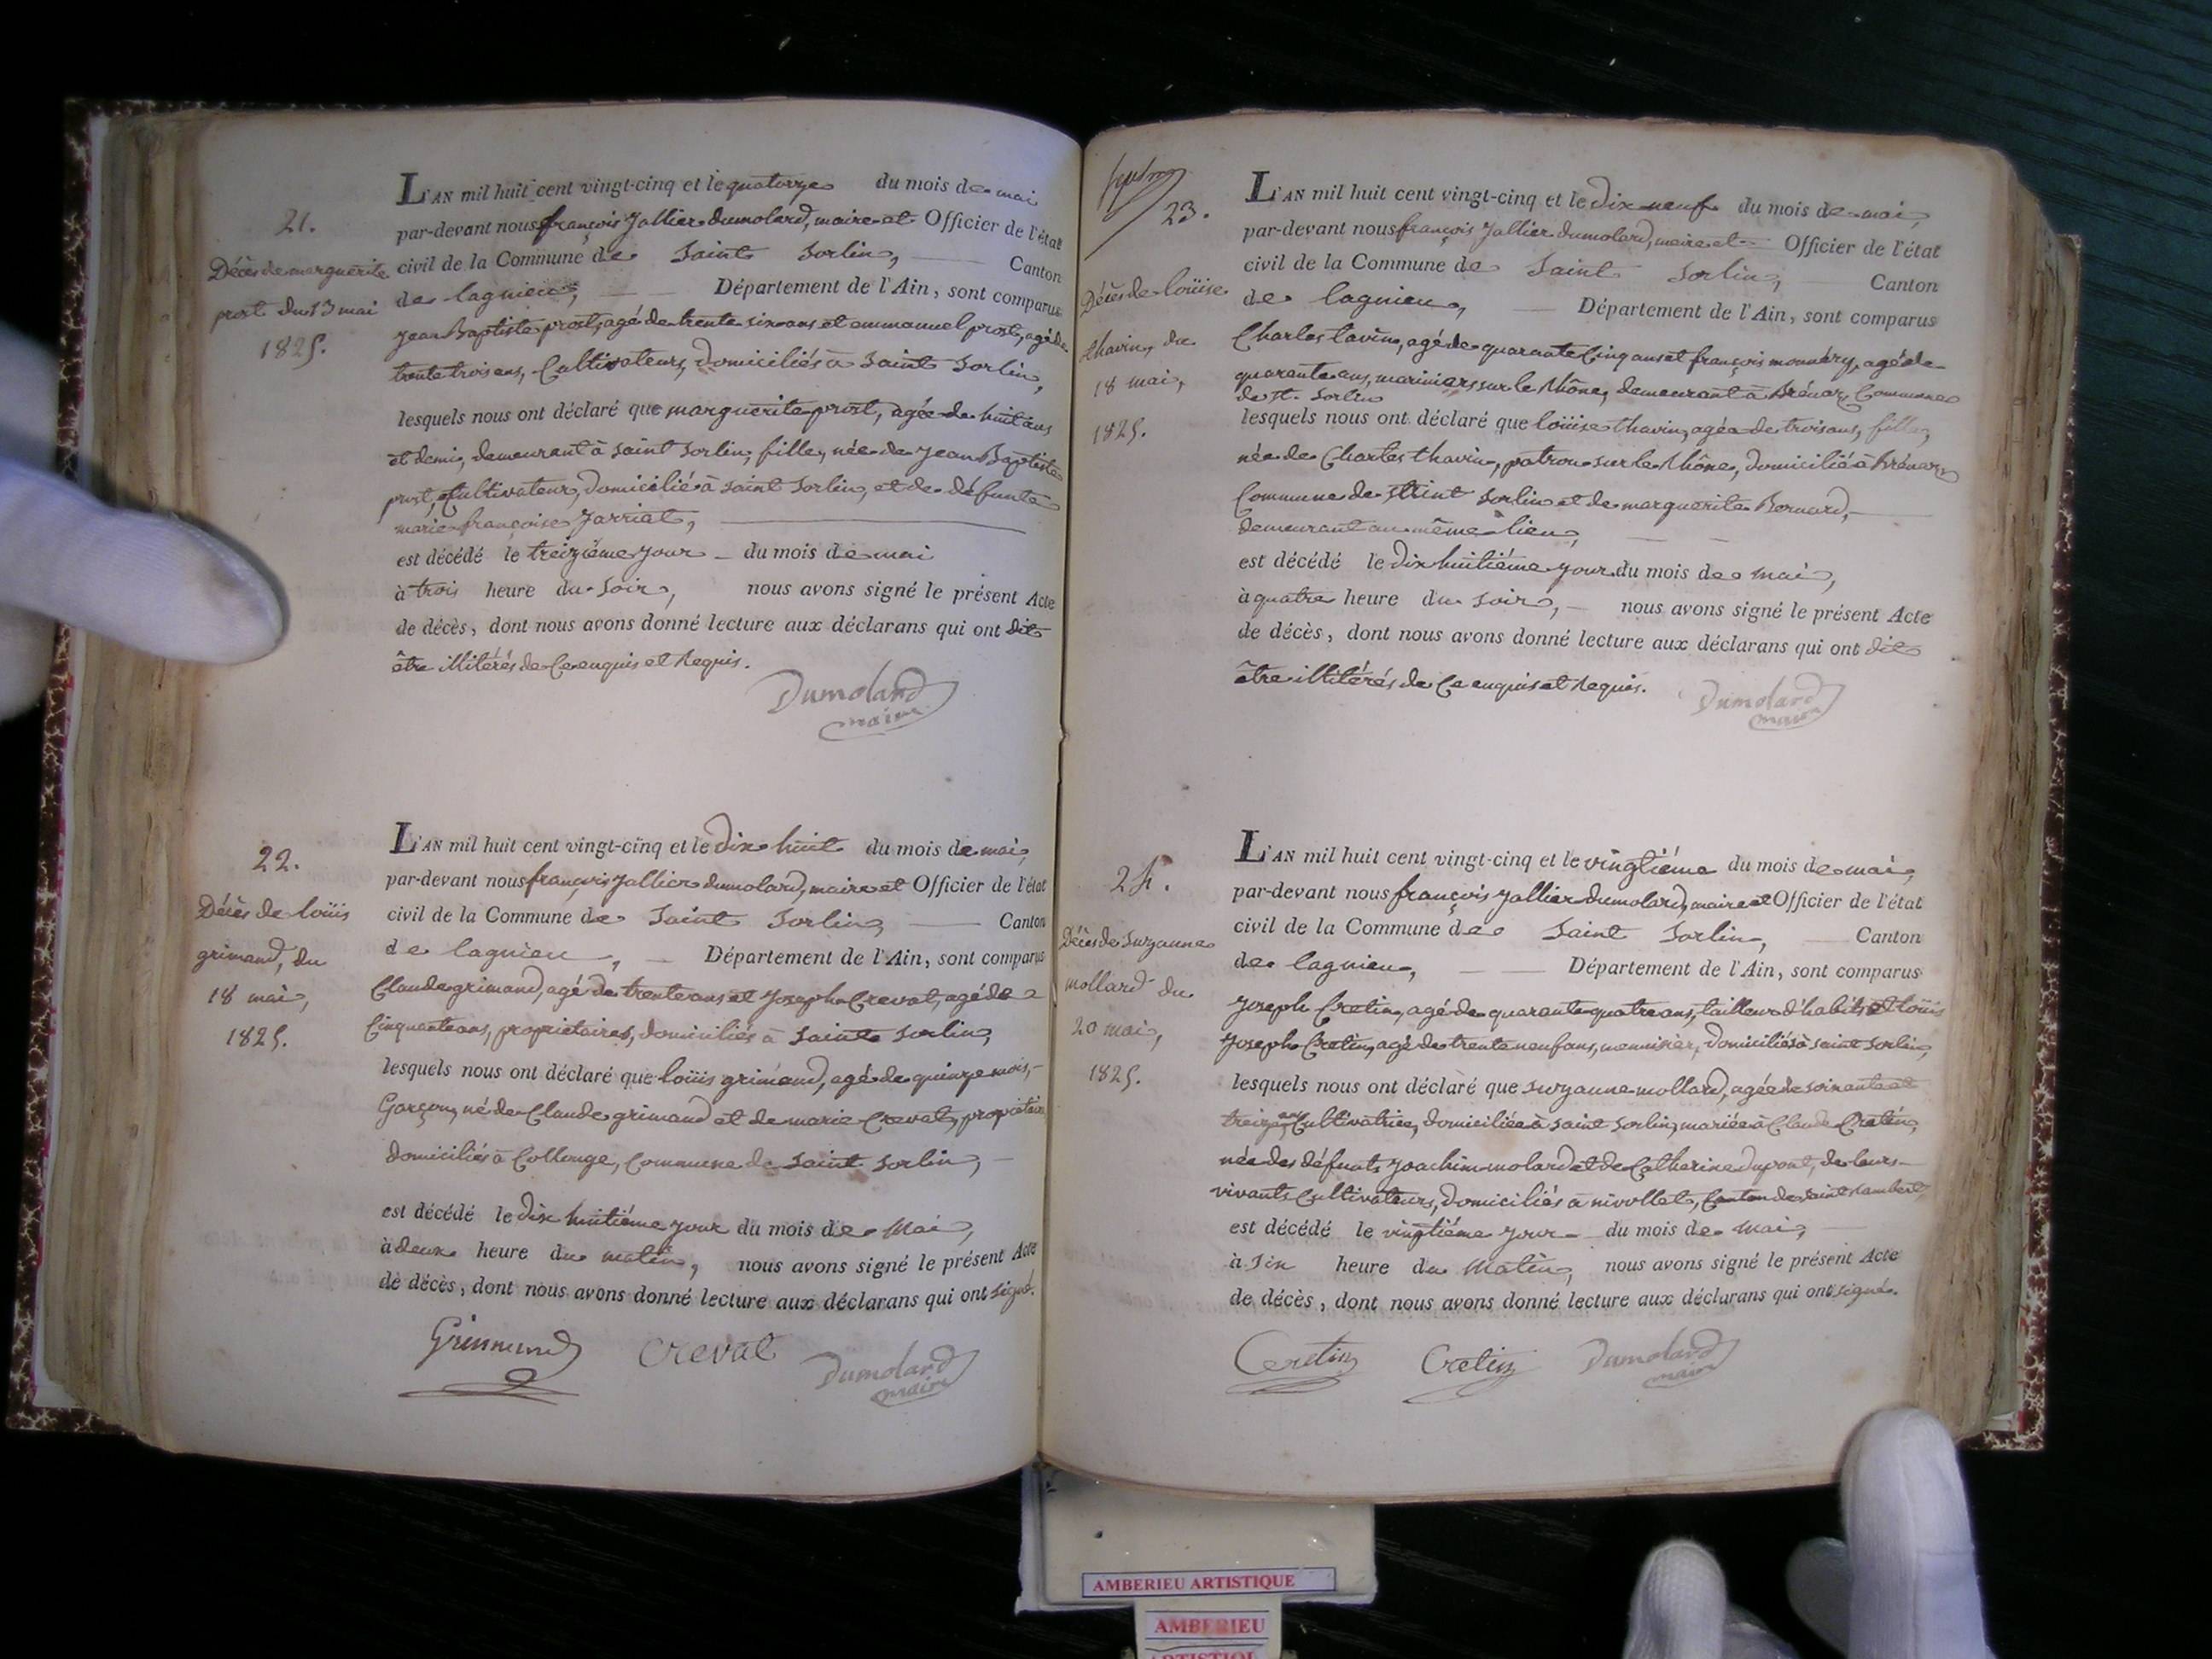 21.
Décès de marguerite
prost du 13 mai
1825.
L'AN mil huit cent vingt-cinq et le quatorze du mois de mai
par-devant nous françois Jallier dumolard, maire et Officier de l'état
civil de la Commune de Saint Sorlin, Canton
de lagnieu, Département de l'Ain, sont comparus
Jean Baptiste prost, agé de trente six ans et emmanuel prost, agé de
trente trois ans, Cultivateurs, domiciliés à Saint Sorlin,
lesquels nous ont déclaré que marguerite prost, agée de huit ans
et demi, demeurant à saint Sorlin, fille, née de Jean Baptiste
prost, Cultivateur, domicilié à saint Sorlin, et de défunte
marie françoise Jarriat,
est décédé le treizième jour du mois de mai
à trois heure du soir, nous avons signé le présent Acte
de décès, dont nous avons donné lecture aux déclarans qui ont dit
être illitérés de Ce enquis et Requis.
Dumolard
maire
22.
Décès de loüis
grimand, du
18 mai,
1825.
L'AN mil huit cent vingt-cinq et le Dix huit du mois de mai,
par-devant nous françois Jallier dumolard, maire et Officier de l'état
civil de la Commune de Saint Sorlin, Canton
de lagnieu, Département de l'Ain, sont comparus
Claude grimand, agé de trente ans et Joseph Crevat, agé de
Cinquante ans, propriétaires, domiciliés à Saint Sorlin,
lesquels nous ont déclaré que loüis grimand, agé de quinze mois,
Garçon, né de Claude grimand et de marie Crevat, propriétaires
domiciliés à Collonge, Commune de Saint Sorlin,
est décédé le Dix huitième jour du mois de Mai,
à deux heure du matin, nous avons signé le présent Acte
de décès, dont nous avons donné lecture aux déclarans qui ont signé.
Grimmand Crevat Dumolard
maire
23.
Décès de loüise
thavin, du
18 mai,
1825.
L'AN mil huit cent vingt-cinq et le Dix neuf du mois de mai,
par-devant nous françois Jallier dumolard, maire et Officier de l'état
civil de la Commune de Saint Sorlin, Canton
de lagnieu, Département de l'Ain, sont comparus
Charles tavin, agé de quarante Cinq ans et françois monnéry, agé de
quarante ans, mariniers sur le Rhône, demeurant à Brénaz, Commune
de St. Sorlin
lesquels nous ont déclaré que loüise thavin, agée de trois ans, fille,
née de Charles thavin, patron sur le Rhône, domicilié à Brénaz,
Commune de Saint Sorlin et de marguerite Bernard,
demeurant au même lieu,
est décédé le Dix huitième jour du mois de mai,
à quatre heure du soir, nous avons signé le présent Acte
de décès, dont nous avons donné lecture aux déclarans qui ont dit
être illitérés de Ce enquis et Requis.
Dumolard
maire
24.
Décès de Suzanne
mollard du
20 mai,
1825.
L'AN mil huit cent vingt-cinq et le vingtième du mois de mai,
par-devant nous françois Jallier dumolard, maire et Officier de l'état
civil de la Commune de Saint Sorlin, Canton
de lagnieu, Département de l'Ain, sont comparus
Joseph Cretin, agé de quarante quatre ans, tailleur d'habits et loüis
Joseph Cretin, agé de trente neuf ans, menuisier, domiciliés à saint Sorlin,
lesquels nous ont déclaré que suzanne mollard, agée de soixante et
treize ans Cultivatrice, domiciliée à saint Sorlin, mariée à Claude Cretin,
née des défunts Joachim molard et de Catherine dupont, de leurs
vivants Cultivateurs, domiciliés à nivollet, Canton de saint Rambert,
est décédé le vingtième jour du mois de mai,
à six heure du Matin, nous avons signé le présent Acte
de décès, dont nous avons donné lecture aux déclarans qui ont signé.
Cretin Cretin Dumolard
maire
AMBERIEU ARTISTIQUE
AMBERIEU
ARTISTIQU